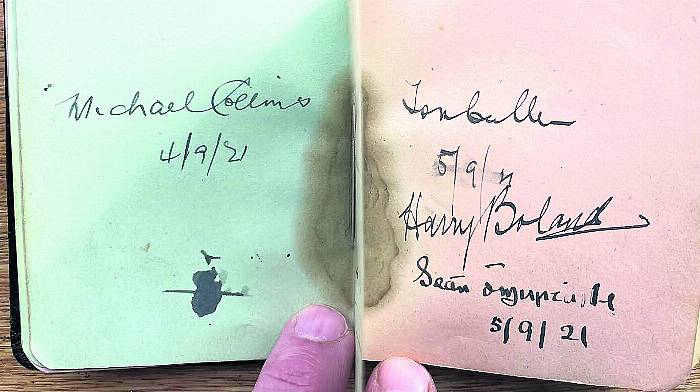 Michael Collins
4/9/21
Tom Cullen
5/9/21
Harry Boland
Seán
5/9/21